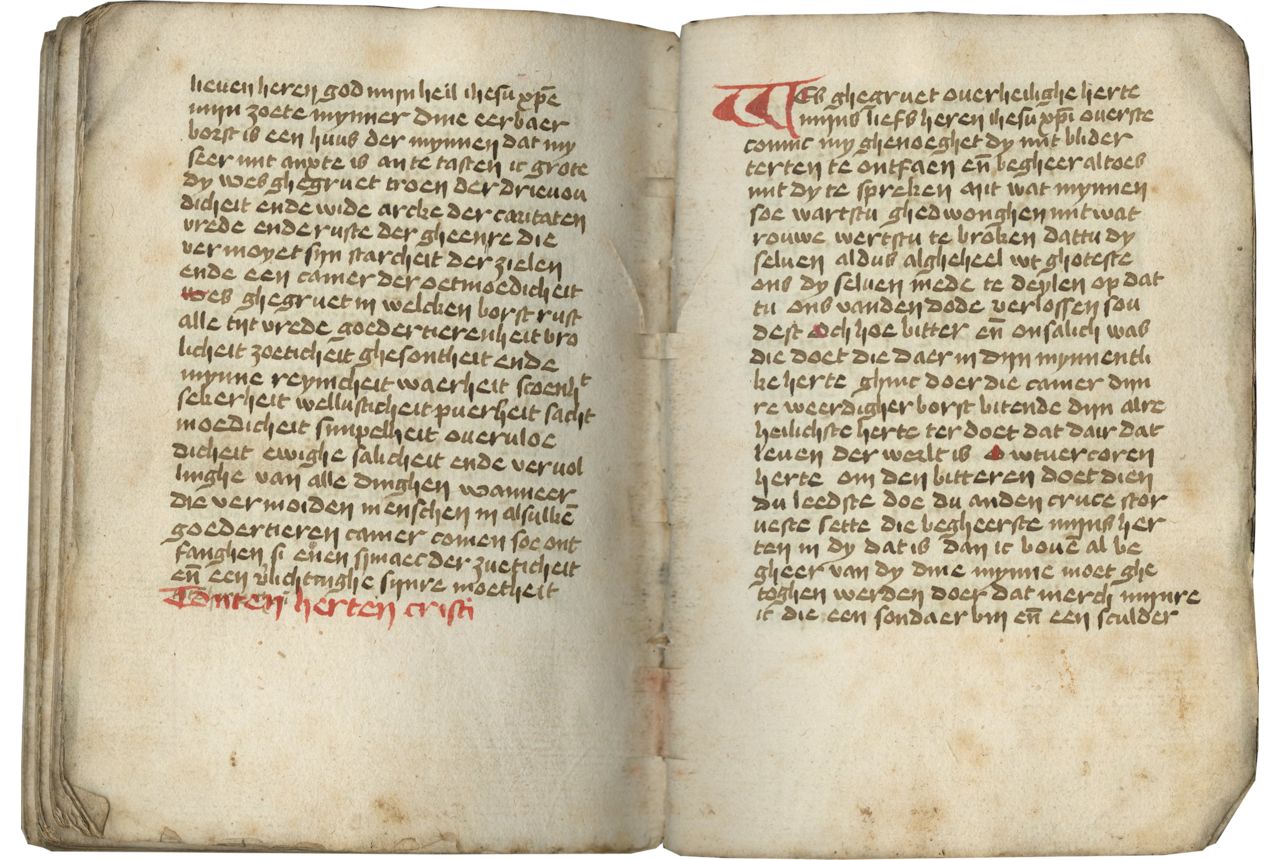 lieuen heren god mijn heil ihesu xpe
mijn zoete mynner dine eerbaer
borst is een huus der mynnen dat my
seer mit anxte is an te tasten ic grote
dy wes ghegruet troen der drieuou
dicheit ende wide arcke der caritaten
vrede ende ruste der gheenre die
vermoyet sijn starcheit der zielen
ende een camer der oetmoedicheit
wes ghegruet in welcken borst rust
alle tijt vrede goedertierenheit vro
licheit zoeticheit ghesontheit ende
mynne reynicheit waerheit scoenht
sekerheit wellusticheit puerheit sacht
moedicheit simpelheit overvloe
dicheit ewighe salicheit ende vervol
linghe van alle dinghen wanneer
die vermoiden menschen in alsulkē
goedertieren camer comen soe ont
fanghen si enen smaec der zueticheit
en̄ een vlichtinghe sijnre moetheit
Totten herten cristi
Wes ghegruet overheilighe herte
mijns liefs heren ihesu xpi overste
coninc my ghenoeghet dy mit blider
terten te ontfaen en̄ begheer altoes
mit dy te spreken mit wat mynnen
soe wartstu ghedwonghen mit wat
rouwe wertstu te broken dattu dy
selven aldus algheheel wt ghoteste
ons dy selven mede te deylen op dat
tu ons vanden dode verlossen sou
dest och hoe bitter en̄ onsalich was
die doet die daer in dijn mynnentli
ke herte ghinc doer die camer dijn
re weerdigher borst bitende dijn alre
heilichste herte ter doet dat dair dat
leven der werlt is O wtuercoren
herte om den bitteren doet dien
du leedste doe du anden cruce stor
ueste sette die begheerste mijns her
ten in dy dat is dan ic bouē al be
gheer van dy dine mynne moet ghe
toghen werden doer dat merch mijnre
ic die een sondaer bin en̄ een sculder